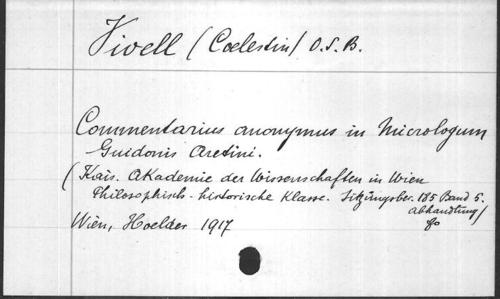 Vivell (Coelestin) O.S.B.
Commentarius anonymus in Micrologum
Guidonis Aretini.
(Kais. Akademie der Wissenschaften in Wien
Philosophisch-historische Klasse. Sitzungsber. 185 Band 5.
Abhandlung)
Wien, Hoelder 1917